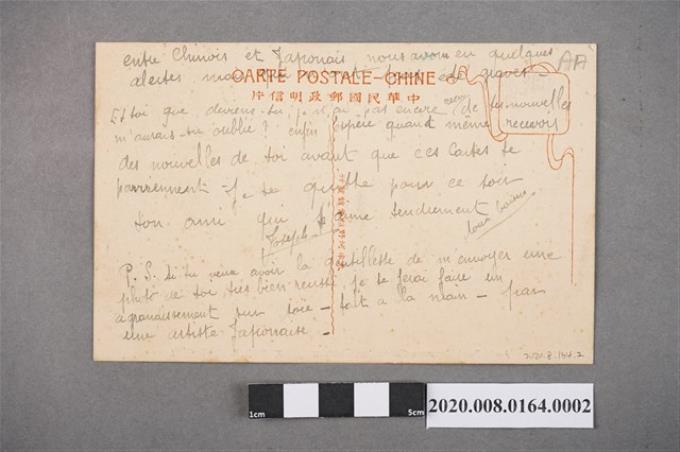 entre Chinois et Japonais nous avons eu quelques
AA
alertes mais
CARTE POSTALE-CHINE
片信明政郵國民華中
Et toi que deviens-tu, je n'ai pas encore de tes nouvelles
m'aurais-tu oublié? enfin j'espère quand même recevoir
des nouvelles de toi avant que ces cartes te
parviennent - je te quitte pour ce soir
ton ami qui t'aime tendrement
Joseph
doux baisers
P.S. Si tu veux avoir la gentillesse de m'envoyer une
photo de toi très bien réussie je te ferai faire un
agrandissement sur soie - fait à la main - par
une artiste Japonaise -
2020.8.164.2
1cm
5cm
2020.008.0164.0002